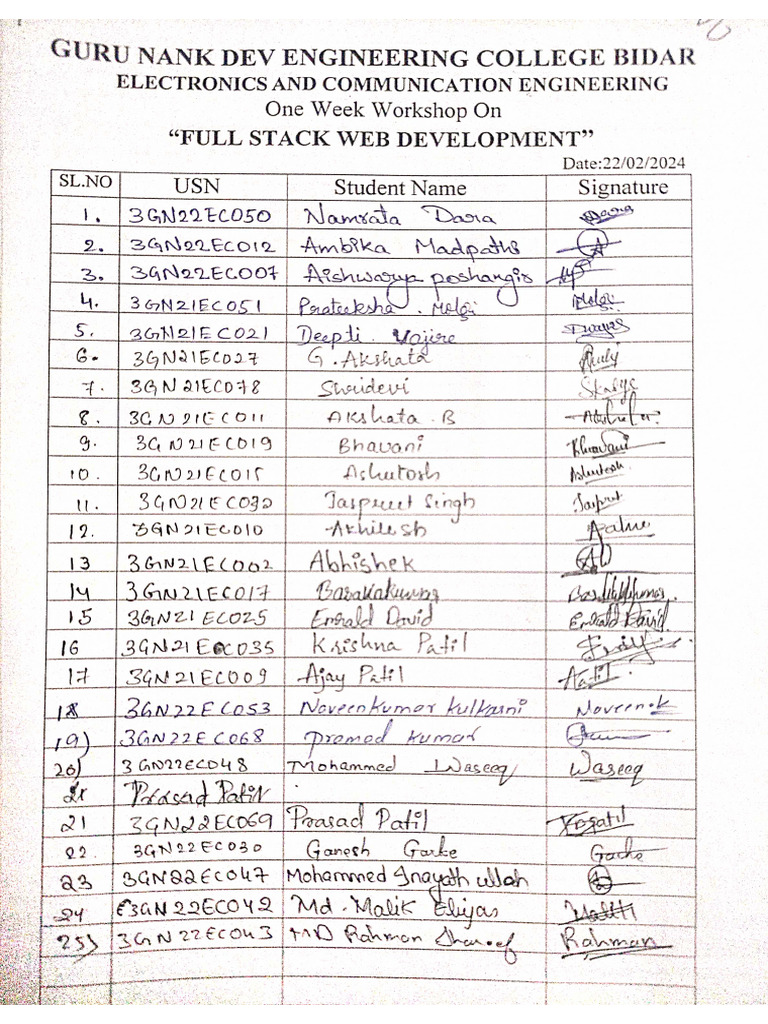 GURU NANK DEV ENGINEERING COLLEGE BIDAR
ELECTRONICS AND COMMUNICATION ENGINEERING
One Week Workshop On
“FULL STACK WEB DEVELOPMENT”
Date:22/02/2024
SL.NO USN Student Name Signature
1. 3GN22EC050 Namrata Dara
2. 3GN22EC012 Ambika Madpathi
3. 3GN22EC007 Aishwarya poshangis
4. 3GN21EC051 Prateeksha . Molgi Molgi
5. 3GN21EC021 Deepti.
6. 3GN21EC027 G. Akshata
7. 3GN21EC078 Shridevi
8. 3GN21EC011 Akshata .B
9. 3GN21EC019 Bhavani Bhavani
10. 3GN21EC015 Ashutosh Ashutosh
11. 3GN21EC032 Jaspreet Singh
12. 3GN21EC010 Akhilesh
13 3GN21EC002 Abhishek
14 3GN21EC017
15 3GN21EC025 Emrald David Emrald David
16 3GN21EC035 Krishna Patil
17 3GN21EC009 Ajay Patil
18 3GN22EC053 Naveenkumar kulkarni Naveen.k
19) 3GN22EC068 pramod kumar
20) 3GN22EC048 Mohammed Waseeq Waseeq
21 Prasad Patil
21 3GN22EC069 Prasad Patil
22. 3GN22EC030 Ganesh Garke Garke
23 3GN22EC047 Mohammed Inayath ullah
24 3GN22EC042 Md. Malik Eliyas
25) 3GN22EC043 MD Rahman Shareef Rahman